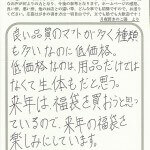 良い品質のマットが多く種類
も多いなのに低価格。
低価格なのは用品だけでは
なくて生体もだと思う。
来年は福袋を買おうと思っ
ているので、来年の福袋を
楽しみにしています。